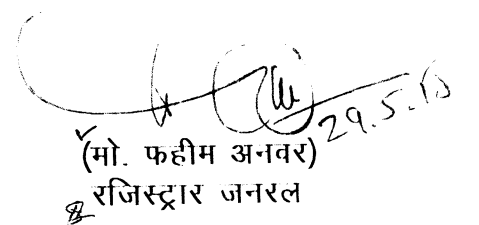 29.5.15
(मो. फहीम अनवर)
रजिस्ट्रार जनरल